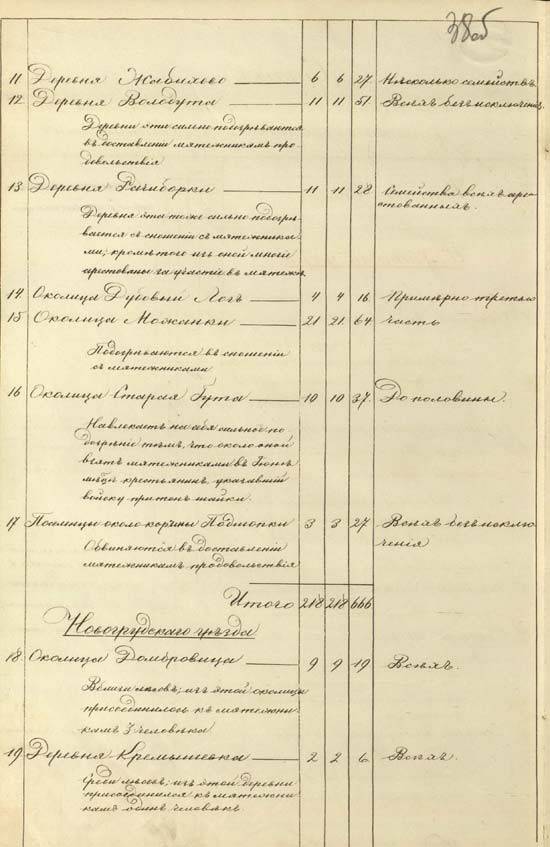 38об
11 Деревня Жабихово 6 6 27 Нѣсколько семействъ
12 Деревня Володута 11 11 51 Всѣхъ безъ исключенія
Деревни эти сильно подозрѣваются
въ доставленіи мятежникамъ про-
довольствія
13 Деревня Рачиборки 11 11 28 Семейства всѣхъ аре-
стованныхъ.
Деревня эта тоже сильно подозрѣ-
вается въ сношеніи съ мятежника-
ми; кромѣ того изъ оной многіе
арестованы за участіе въ мятежѣ.
14 Околица Дубовый Логъ 4 4 16 Примѣрно третью
15 Околица Можанки 21 21 64 часть
Подозрѣваются въ сношеніи
съ мятежниками
16 Околица Старая Гута 10 10 37. До половины.
Навлекаетъ на себя сильное по-
дозрѣніе тѣмъ, что около оной
взятъ мятежниками въ Іюнѣ
мѣцѣ крестьянинъ, указавшій
войску притонъ шайки.
17 Поселенцы около корчмы Подмопки 3 3 27 Всѣхъ безъ исклю-
ченія
Обвиняются въ доставленіи
мятежникамъ продовольствія
Итого 218 218 666
Новогрудскаго уѣзда
18 Околица Домбровица 9 9 19 Всѣхъ.
Вблизи лѣсовъ; изъ этой околицы
присоединилось къ мятежни-
камъ 3 человѣка
19 Деревня Кремышевка 2 2 6 Всѣхъ.
Среди лѣсовъ; изъ этой деревни
присоединился къ мятежни-
камъ одинъ человѣкъ.